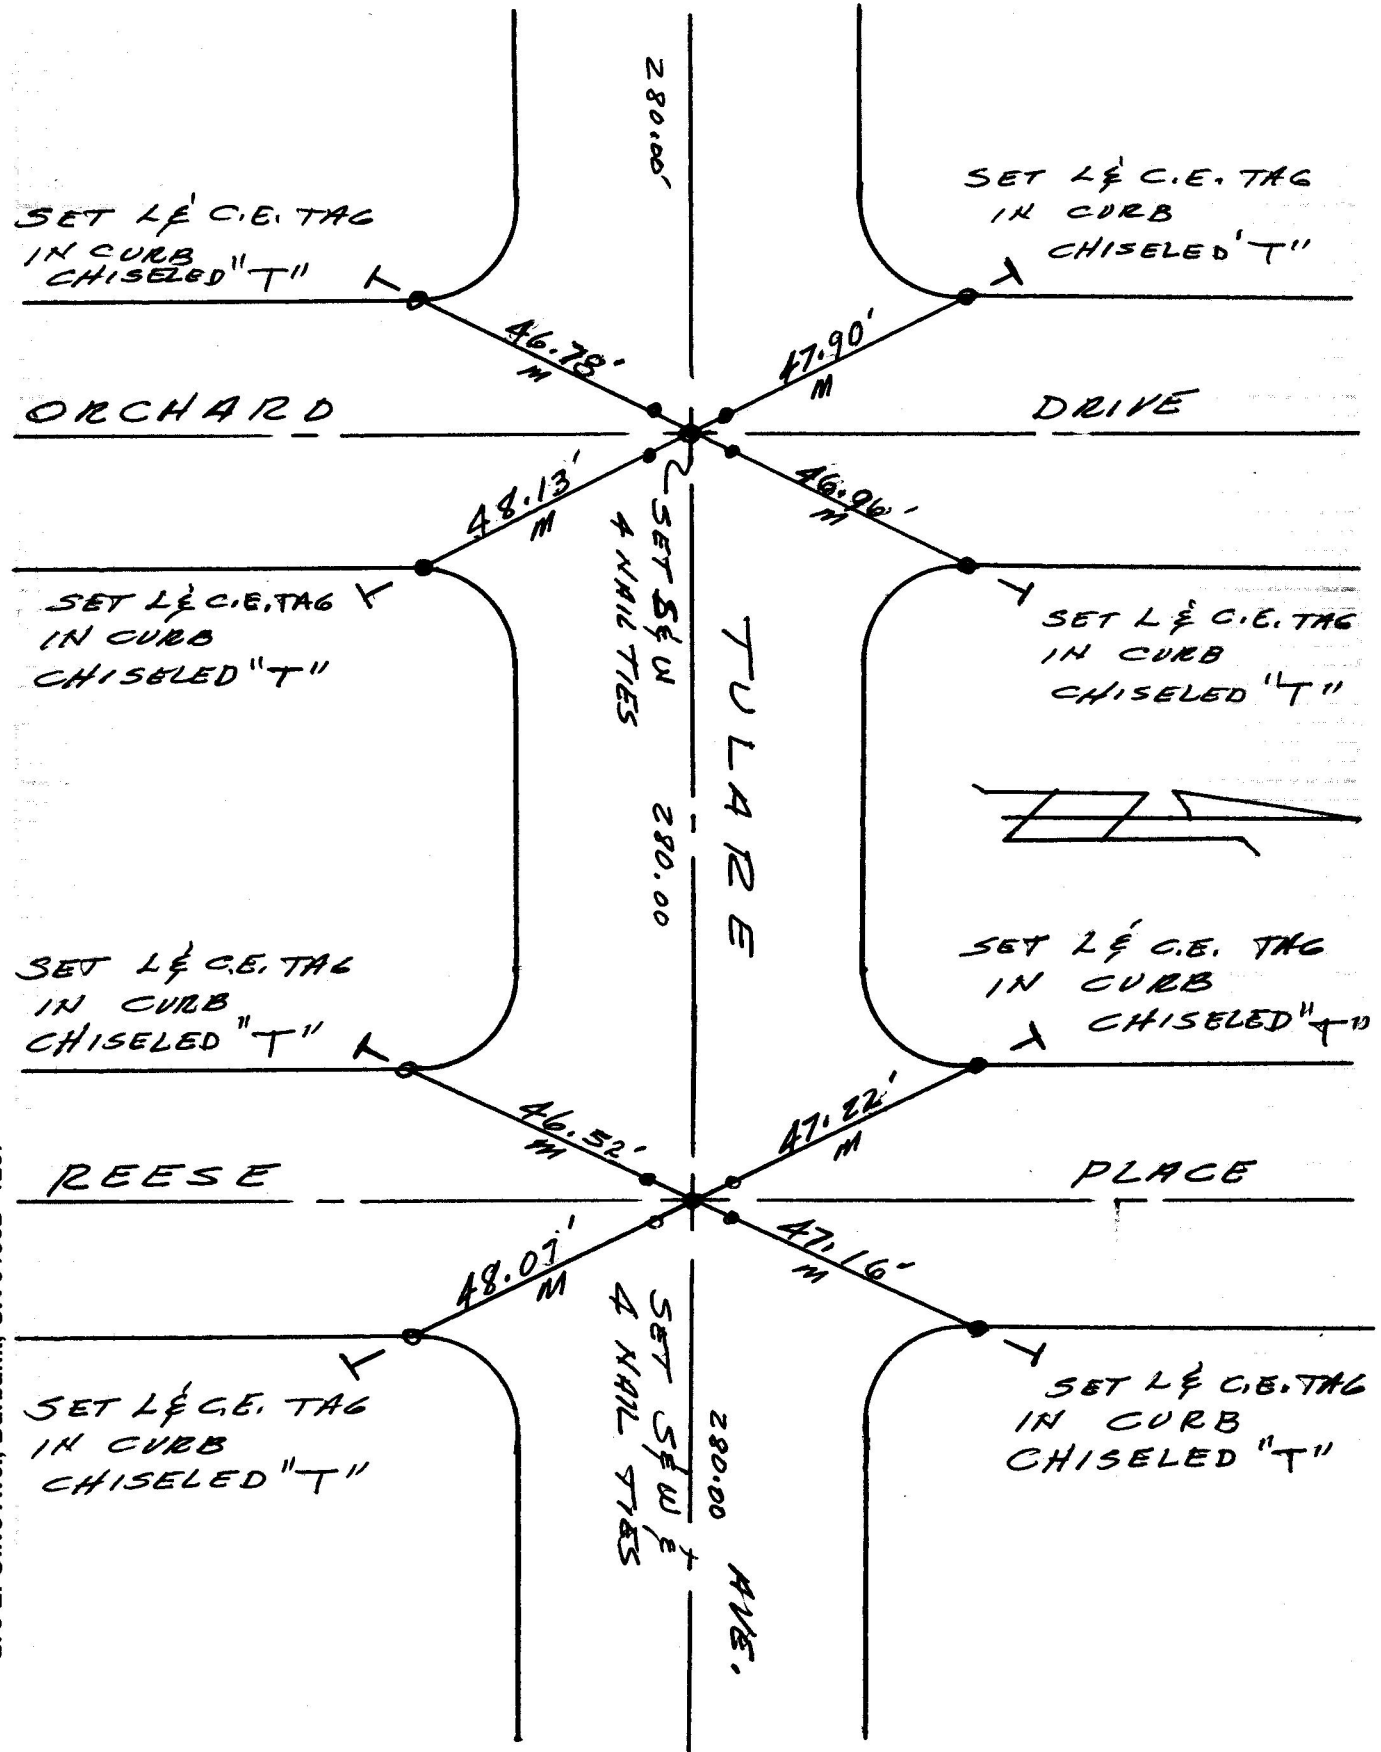 280.00'
SET L & C.E. TAG
IN CURB
CHISELED "T"
SET L & C.E. TAG
IN CURB
CHISELED 'T"
T
T
46.78'
M
47.90'
M
ORCHARD DRIVE
48.13'
M
46.96'
M
SET S & W
4 NAIL TIES
T
T
SET L & C.E. TAG
IN CURB
CHISELED "T"
SET L & C.E. TAG
IN CURB
CHISELED "T"
TULARE
280.00
SET L & C.E. TAG
IN CURB
CHISELED "T"
SET L & C.E. TAG
IN CURB
CHISELED "T"
T
T
46.52'
M
47.22'
M
REESE PLACE
48.07'
M
47.16'
M
SET S & W &
4 NAIL TIES
T
T
SET L & C.E. TAG
IN CURB
CHISELED "T"
SET L & C.E. TAG
IN CURB
CHISELED "T"
280.00
AVE.